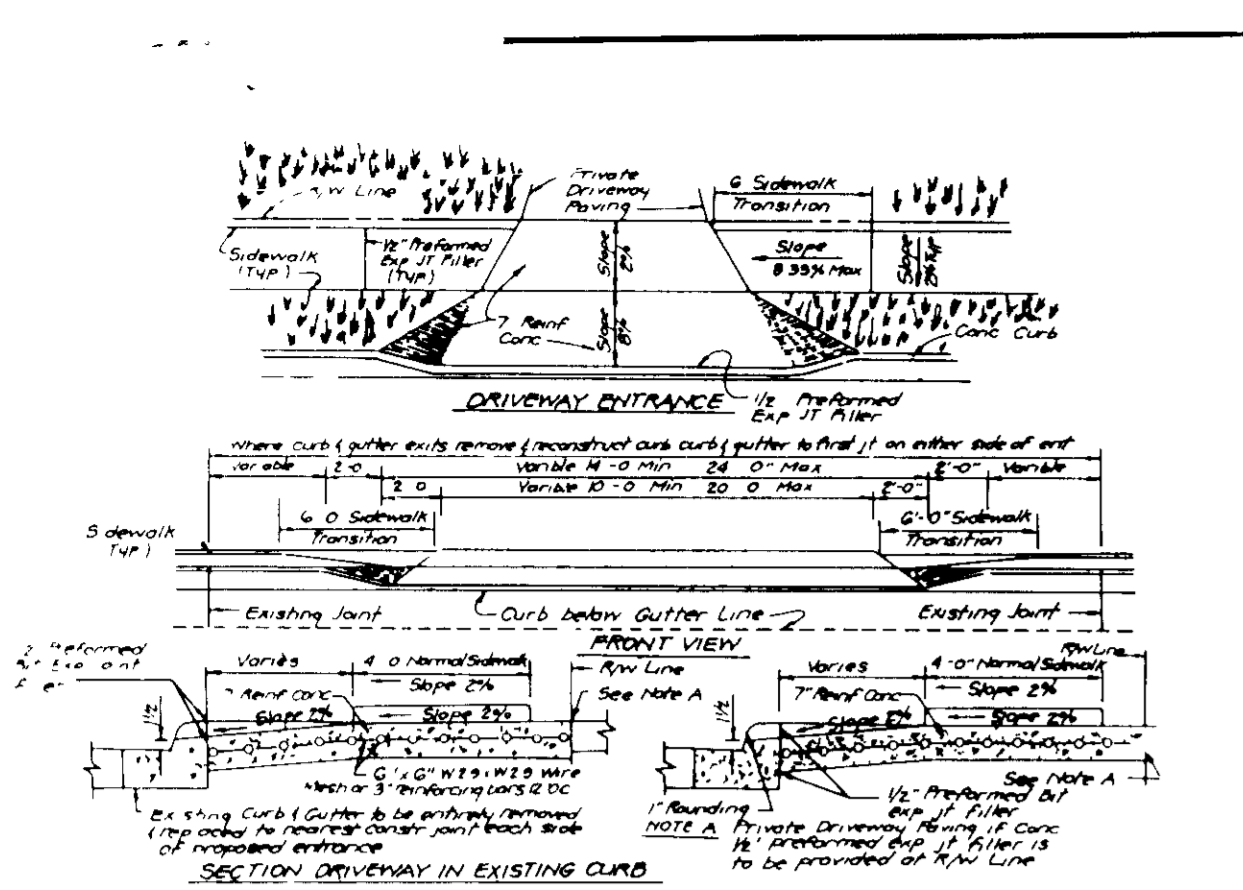 R/W Line
Private
Driveway
Paving
6 Sidewalk
Transition
Sidewalk
(TYP)
1/2" Preformed
Exp JT Filler
(TYP)
Slope
2%
Slope
8 33% Max
Slope
2% Typ
7 Reinf
Conc
Slope
8%
Conc Curb
DRIVEWAY ENTRANCE
1/2 Preformed
Exp JT Filler
Where curb & gutter exits remove & reconstruct curb curb & gutter to first jt on either side of ent
Variable
2-0
Varible 14-0 Min 24 0" Max
2'-0"
Varible
2 0
Varible 10-0 Min 20 0 Max
2'-0"
6 0 Sidewalk
Transition
6'-0" Sidewalk
Transition
Sidewalk
TYP)
Existing Joint
Curb below Gutter Line
Existing Joint
FRONT VIEW
Preformed
Varies
4 0 Normal Sidewalk
Slope 2%
R/W Line
See Note A
Reinf Conc
Slope 2%
Slope 2%
1 1/2
6" x 6" W29 x W29 Wire
Mesh or 3" reinforcing bars 12 OC
Existing Curb & Gutter to be entirely removed
& replaced to nearest constr joint each side
of proposed entrance
SECTION DRIVEWAY IN EXISTING CURB
R/W Line
Varies
4-0" Normal Sidewalk
Slope 2%
7" Reinf Conc
1 1/2
Slope
Slope 2%
See Note A
1/2" Preformed Bit
exp jt filler
1" Rounding
NOTE A Private Driveway Paving if Conc
1/2" preformed exp jt filler is
to be provided at R/W Line